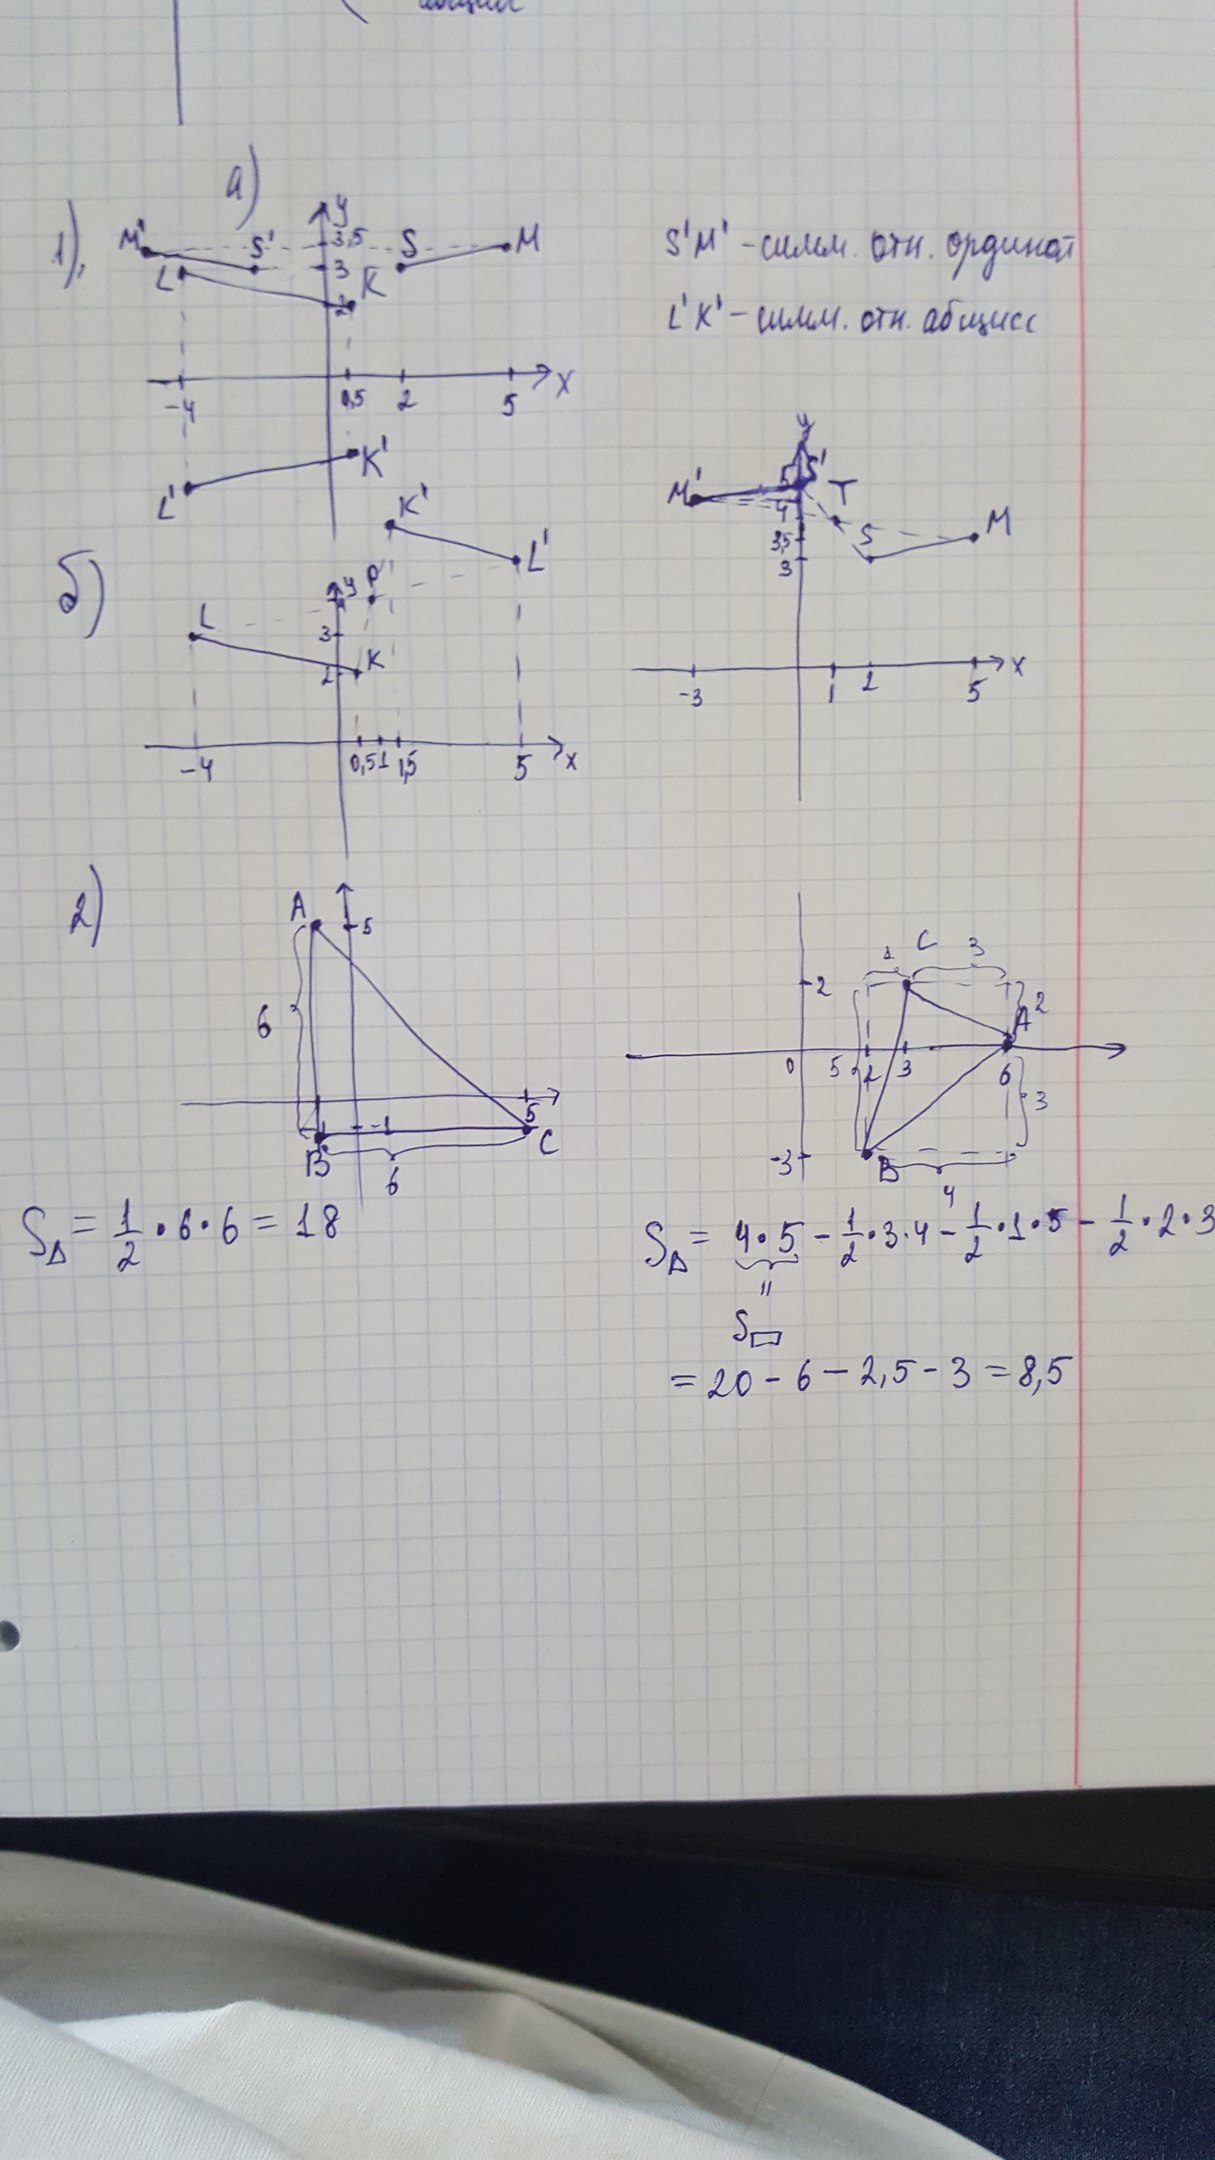 абцисс
а)
1).
M' S' y 3,5 S M
L' 3 K
2
-4 0,5 2 5 x
L' K'
S'M' – симм. отн. ординат
L'K' – симм. отн. абцисс
y
M' 5 S' T
4 S M
3,5
3
-3 1 2 5 x
б)
K' L'
L y P
4
3
2 K
-4 0,5 1 1,5 5 x
2)
A 5
6
5
-1
B 6 C
S△ = 1/2 · 6 · 6 = 18
1 C 3
2 A 2
0 5 2 3 6 3
-3 B 4
S△ = 4 · 5 – 1/2 · 3 · 4 – 1/2 · 1 · 5 – 1/2 · 2 · 3
=
S▭
= 20 – 6 – 2,5 – 3 = 8,5